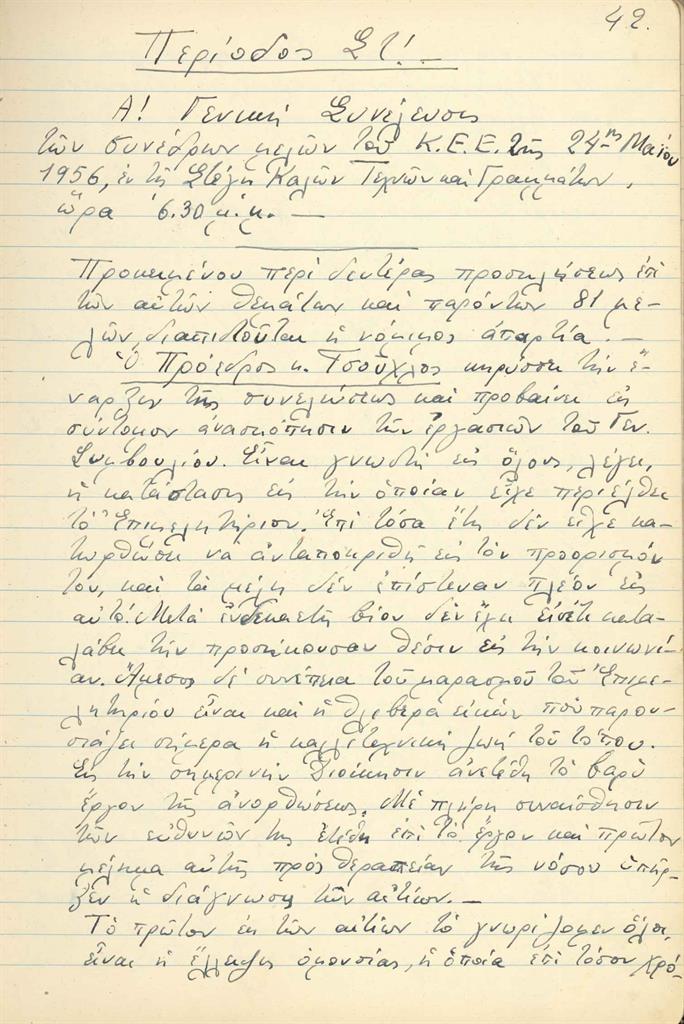 42.
Περίοδος ΣΤ! —
Α! Γενική Συνέλευσις
τῶν συνέδρων μελῶν τοῦ Κ.Ε.Ε. τῆς 24ης Μαΐου
1956, ἐν τῇ Στέγῃ Καλῶν Τεχνῶν καὶ Γραμμάτων,
ὥρα 6.30 μ.μ. —
Προκειμένου περὶ δευτέρας προσκλήσεως ἐπὶ
τῶν αὐτῶν θεμάτων καὶ παρόντων 81 με-
λῶν, διαπιστοῦται ἡ νόμιμος ἀπαρτία. —
Ὁ Πρόεδρος κ. Τσοῦχλος κηρύσσει τὴν ἔ-
ναρξιν τῆς συνελεύσεως καὶ προβαίνει εἰς
σύντομον ἀνασκόπησιν τῶν ἐργασιῶν τοῦ Γεν.
Συμβουλίου. Εἶναι γνωστὴ εἰς ὅλους, λέγει,
ἡ κατάστασις εἰς τὴν ὁποίαν εἶχε περιέλθει
τὸ Ἐπιμελητήριον. Ἐπὶ τόσα ἔτη δὲν εἶχε κα-
τωρθώσει νὰ ἀνταποκριθῇ εἰς τὸν προορισμόν
του, καὶ τὰ μέλη δὲν ἐπίστευαν πλέον εἰς
αὐτό. Μετὰ ἑνδεκαετῆ βίον δὲν ἔχει εἰσέτι κατα-
λάβει τὴν προσήκουσαν θέσιν εἰς τὴν κοινωνί-
αν. Ἄμεσος δὲ συνέπεια τοῦ μαρασμοῦ τοῦ Ἐπιμε-
λητηρίου εἶναι καὶ ἡ θλιβερὰ εἰκὼν ποὺ παρου-
σιάζει σήμερα ἡ καλλιτεχνικὴ ζωὴ τοῦ τόπου.
Εἰς τὴν σημερινὴν Διοίκησιν ἀνετέθη τὸ βαρὺ
ἔργον τῆς ἀνορθώσεως. Μὲ πλήρη συναίσθησιν
τῶν εὐθυνῶν της ἐτέθη ἐπὶ τὸ ἔργον καὶ πρῶτον
μέλημα αὐτῆς πρὸς θεραπείαν τῆς νόσου ὑπῆρ-
ξεν ἡ διάγνωσις τῶν αἰτίων. —
Τὸ πρῶτον ἐκ τῶν αἰτίων τὸ γνωρίζομεν ὅλοι,
εἶναι ἡ ἔλλειψις ὁμονοίας, ἡ ὁποία ἐπὶ τόσον χρό-